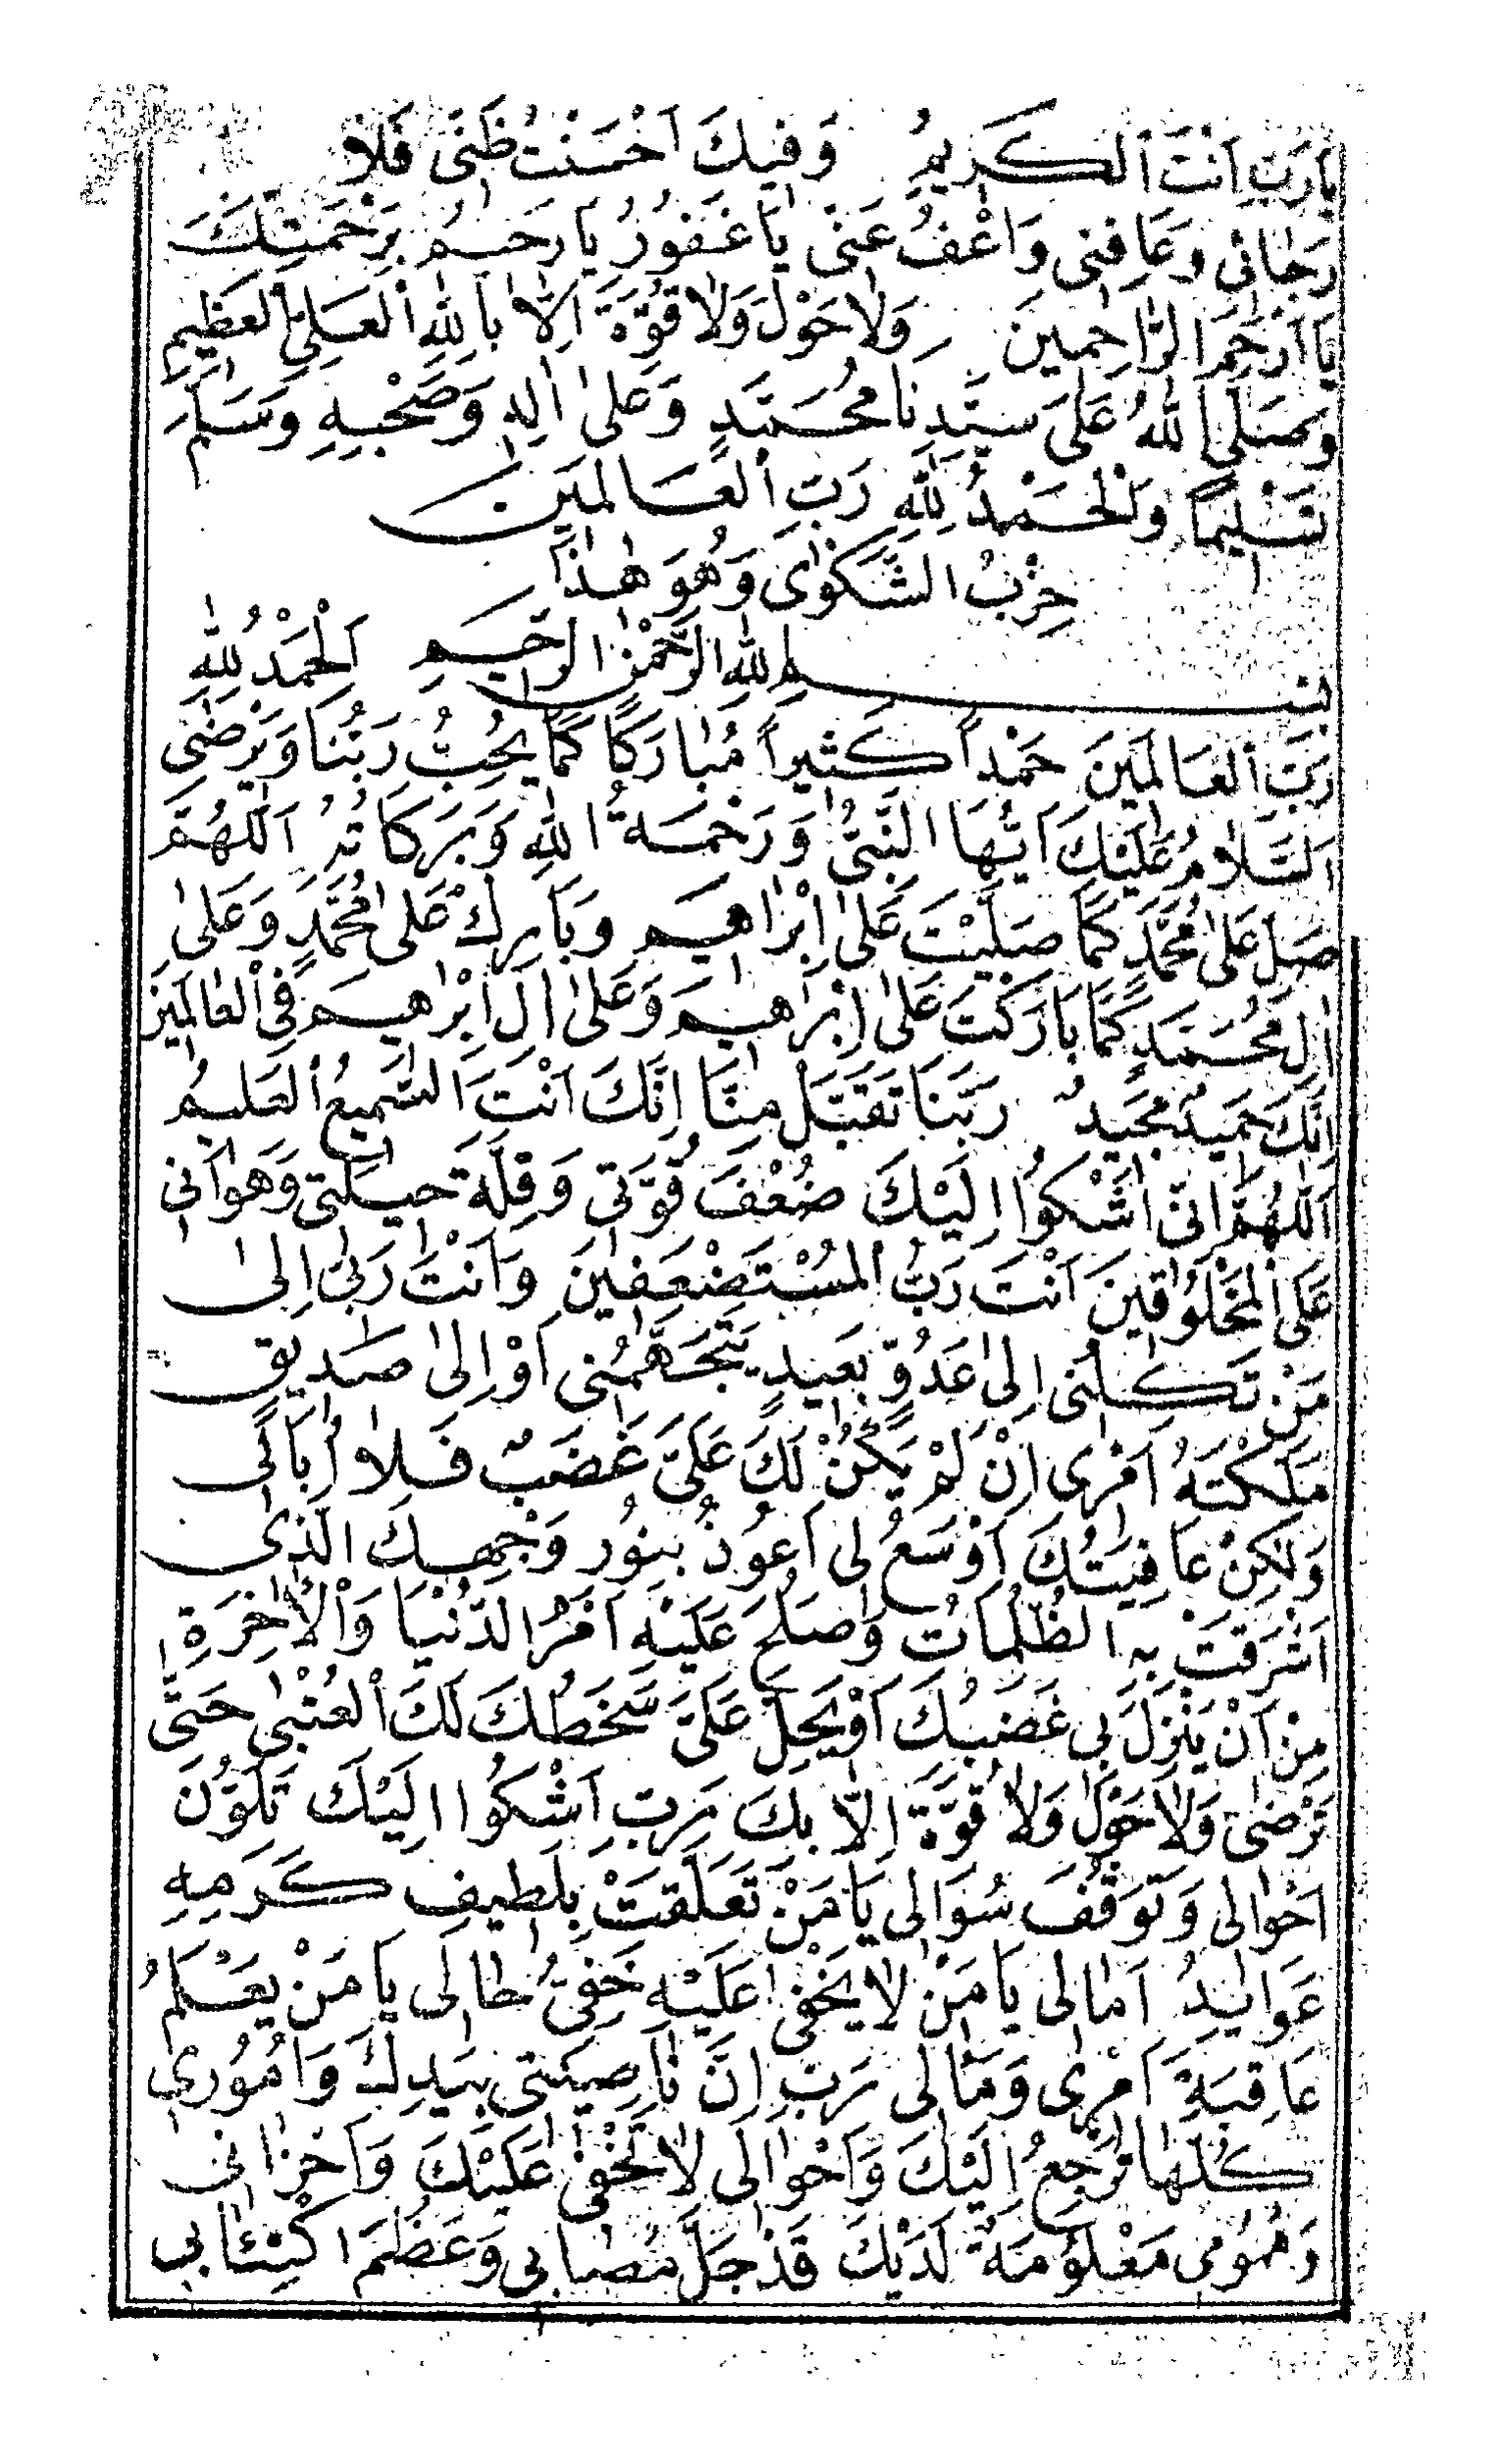 يَارَبِّ اَنْتَ اَلْكَرِيمُ وَفِيكَ اَحْسَنْتُ ظَنِّى فَلاَ
رَجَائى وَعَافِنِى وَاعْفُ عَنِّى يَا غَفُورُ يَا رَحِيمُ بِرَحْمَتِكَ
يَا اَرْحَمَ الرَّاحِمِينَ وَلاَحَوْلَ وَلاَ قُوَّةَ اِلاَّ بِاللهِ الْعَلِيِّ الْعَظِيمِ
وَصَلَّى اللهُ عَلَى سَيِّدِنَا مُحَمَّدٍ وَعَلَى اٰلِهِ وَصَحْبِهِ وَسَلَّمَ
تَسْلِيمًا وَالْحَمْدُ لِلّٰهِ رَبِّ الْعَالَمِينَ
حِزْبُ الشَّكْوٰى وَهُوَ هٰذَا
بِسْمِ اللهِ الرَّحْمٰنِ الرَّحِيمِ اَلْحَمْدُ لِلّٰهِ
رَبِّ الْعَالَمِينَ حَمْداً كَثِيراً مُبَارَكًا كَمَا يُحِبُّ رَبُّنَا وَيَرْضٰى
اَلسَّلاَمُ عَلَيْكَ اَيُّهَا النَّبِىُّ وَرَحْمَةُ اللهِ وَبَرَكَاتُهُ اَللّٰهُمَّ
صَلِّ عَلٰى مُحَمَّدٍ كَمَا صَلَّيْتَ عَلٰى اِبْرَاهِيمَ وَبَارِكْ عَلٰى مُحَمَّدٍ وَعَلٰى
اٰلِ مُحَمَّدٍ كَمَا بَارَكْتَ عَلٰى اِبْرَاهِيمَ وَعَلٰى اٰلِ اِبْرَاهِيمَ فِى الْعَالَمِينَ
اِنَّكَ حَمِيدٌ مَجِيدٌ رَبَّنَا تَقَبَّلْ مِنَّا اِنَّكَ اَنْتَ السَّمِيعُ الْعَلِيمُ
اَللّٰهُمَّ اِنِّى اَشْكُوا اِلَيْكَ ضُعْفَ قُوَّتِى وَقِلَّةَ حِيلَتِى وَهَوَانِى
عَلَى الْمَخْلُوقِينَ اَنْتَ رَبُّ الْمُسْتَضْعَفِينَ وَاَنْتَ رَبِّى اِلٰى
مَنْ تَكِلُنِى اِلٰى عَدُوٍّ بَعِيدٍ يَتَجَهَّمُنِى اَوْ اِلٰى صَدِيقٍ
مَلَّكْتَهُ اَمْرِى اِنْ لَمْ يَكُنْ لَكَ عَلَىَّ غَضَبٌ فَلاَ اُبَالِى
وَلٰكِنْ عَافِيَتُكَ اَوْسَعُ لِى اَعُوذُ بِنُورِ وَجْهِكَ الَّذِى
اَشْرَقَتْ بِهِ الظُّلُمَاتُ وَصَلُحَ عَلَيْهِ اَمْرُ الدُّنْيَا وَالْاٰخِرَةِ
مِنْ اَنْ يَنْزِلَ بِى غَضَبُكَ اَوْ يَحِلَّ عَلَىَّ سَخَطُكَ لَكَ الْعُتْبٰى حَتَّى
تَرْضٰى وَلاَحَوْلَ وَلاَ قُوَّةَ اِلاَّ بِكَ رَبِّ اَشْكُوا اِلَيْكَ تَلَوُّنَ
اَحْوَالِى وَتَوَقُّفَ سُوَالِى يَا مَنْ تَعَلَّقَتْ بِلَطِيفِ كَرَمِهِ
عَوَايِدُ اَمَالِى يَا مَنْ لاَ يَخْفٰى عَلَيْهِ خَفِىُّ حَالِى يَا مَنْ يَعْلَمُ
عَاقِبَةَ اَمْرِى وَمَاٰلِى رَبِّ اِنَّ نَاصِيَتِى بِيَدِكَ وَاُمُورِى
كُلَّهَا تَرْجِعُ اِلَيْكَ وَاَحْوَالِى لاَ تَخْفٰى عَلَيْكَ وَاَحْزَانِى
وَهُمُومِى مَعْلُومَةٌ لَدَيْكَ قَدْ جَلَّ مُصَابِى وَعَظُمَ اكْتِئَابِى